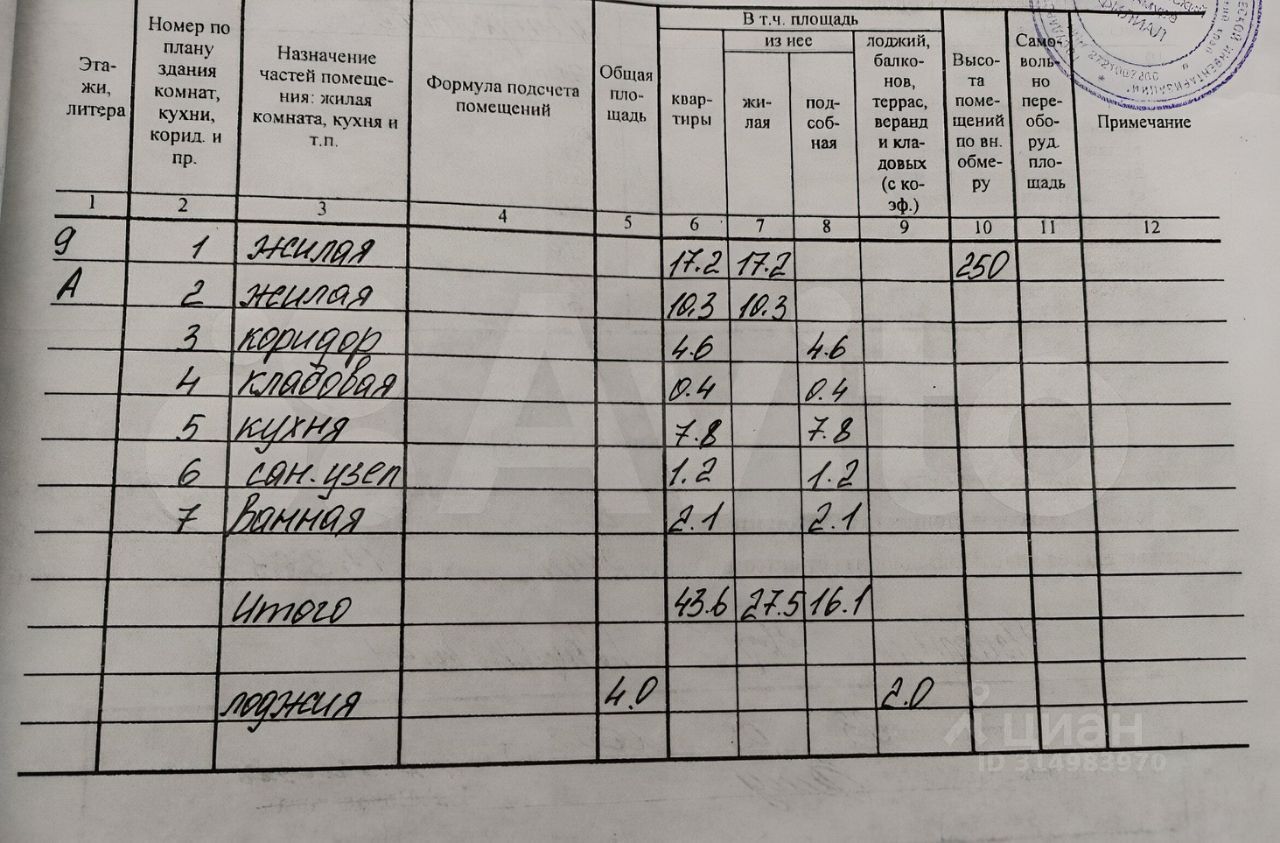 Эта-
жи,
литера
Номер по
плану
здания
комнат,
кухни,
корид. и
пр.
Назначение
частей помеще-
ния: жилая
комната, кухня и
т.п.
Формула подсчета
помещений
Общая
пло-
щадь
В т.ч. площадь
из нее
квар-
тиры
жи-
лая
под-
соб-
ная
лоджий,
балко-
нов,
террас,
веранд
и кла-
довых
(с ко-
эф.)
Высо-
та
поме-
щений
по вн.
обме-
ру
Само-
воль-
но
пере-
обо-
руд.
пло-
щадь
Примечание
1 2 3 4 5 6 7 8 9 10 11 12
9 1 жилая 17.2 17.2 250
А 2 жилая 10.3 10.3
3 коридор 4.6 4.6
4 кладовая 0.4 0.4
5 кухня 7.8 7.8
6 сан.узел 1.2 1.2
7 Ванная 2.1 2.1
Итого 43.6 27.5 16.1
лоджия 4.0 2.0
ФИЛИАЛ
ИНВЕНТАРИЗАЦИИ
Avito
циан
ID 314983970